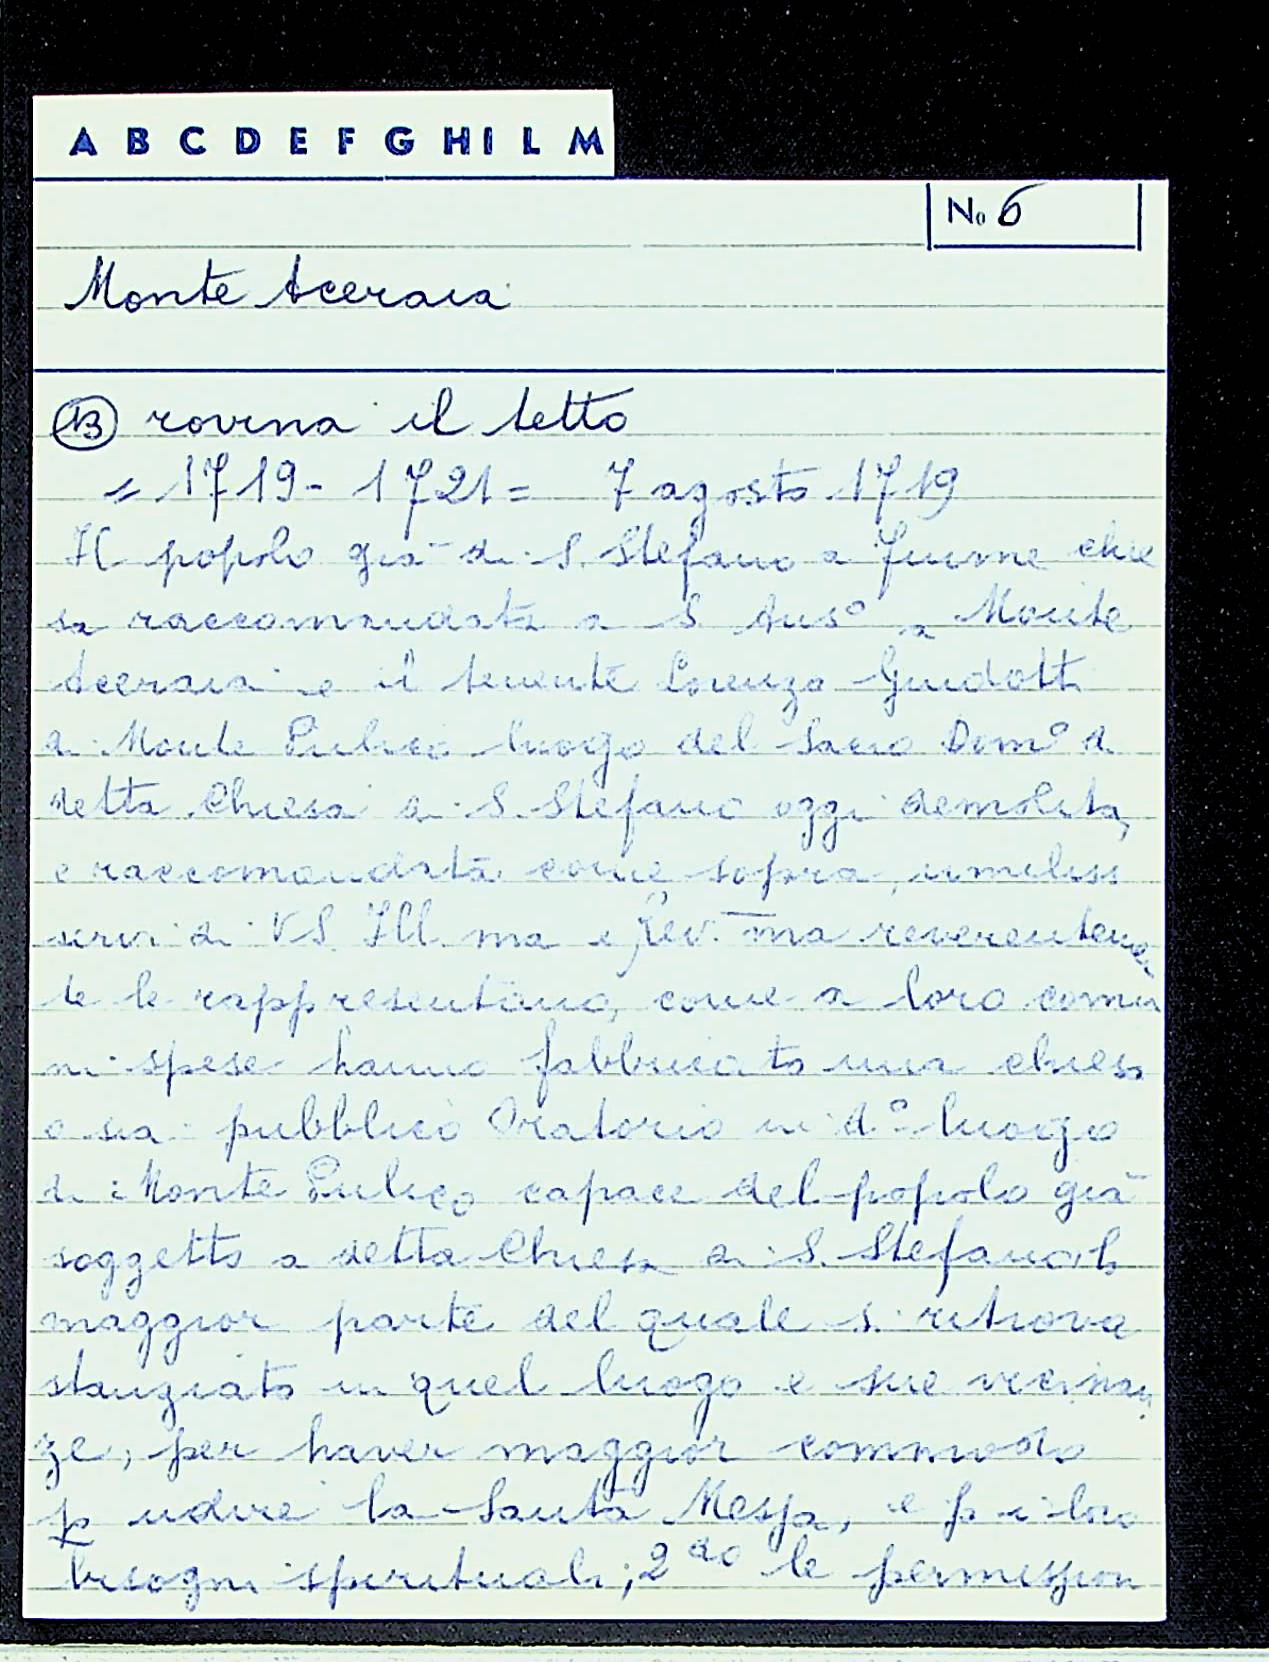 A B C D E F G H I L M
No 6
Monte Aceraia
13 rovina il tetto
= 1719 - 1721 = 7 agosto 1719
Il popolo già di S. Stefano a Fiume chie
sa raccomandata a S. Ans° a Monte
Aceraia e il tenente Lorenzo Guidotti
di Monte Pulico luogo del Sacro Dom° di
detta Chiesa di S. Stefano oggi demolita,
e raccomandata come sopra, umiliss
servi di V.S. Ill.ma e Rev.ma reverentemen
te le rappresentano, come a loro comu
ni spese hanno fabbricato una chiesa
o sia pubblico Oratorio in d.° luogo
di Monte Pulico capace del popolo già
soggetto a detta Chiesa di S. Stefano, la
maggior parte del quale si ritrova
stanziato in quel luogo e sue vicinan
ze, per haver maggior commodo
p udire la Santa Messa, e p i loro
bisogni spirituali; 2do le permission